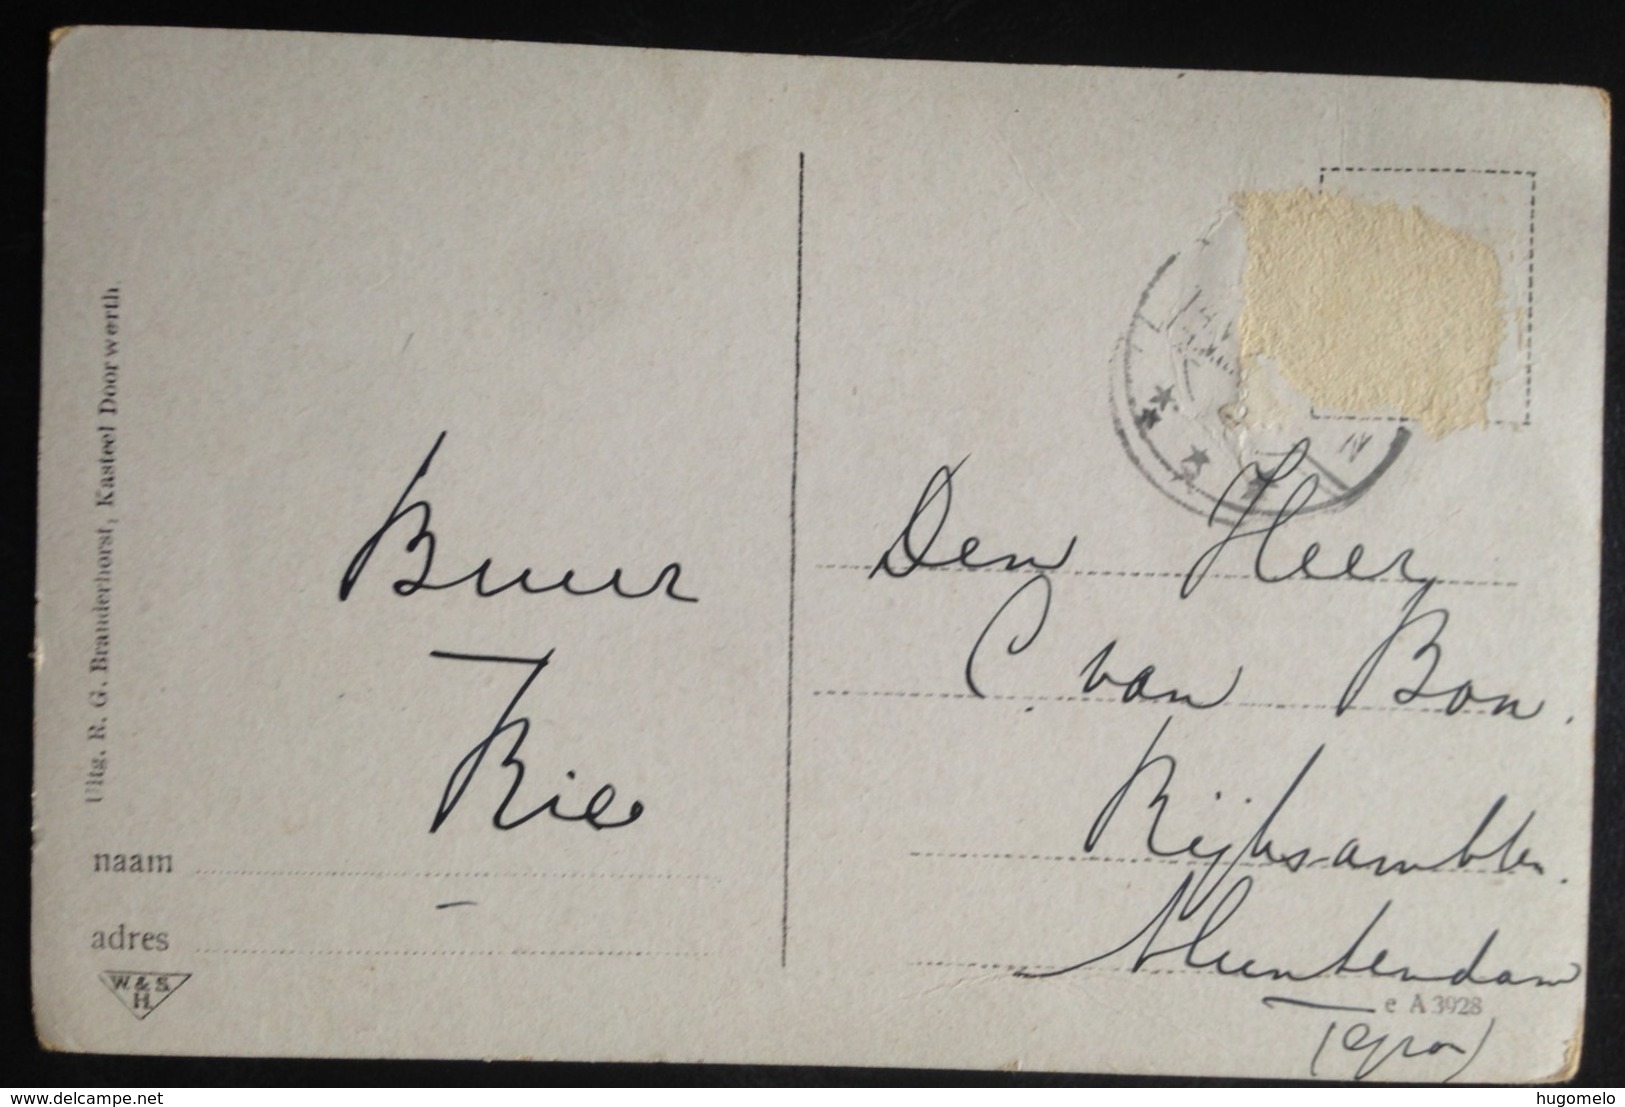 Uitg. R. G. Branderhorst, Kasteel Doorwerth.
Buur
Rie
naam
adres
W. & S.
H.
Den Heer
C. van Bon.
Rijksambten.
Muntendam
e A 3928
(Gron)
www.delcampe.net
hugomelo